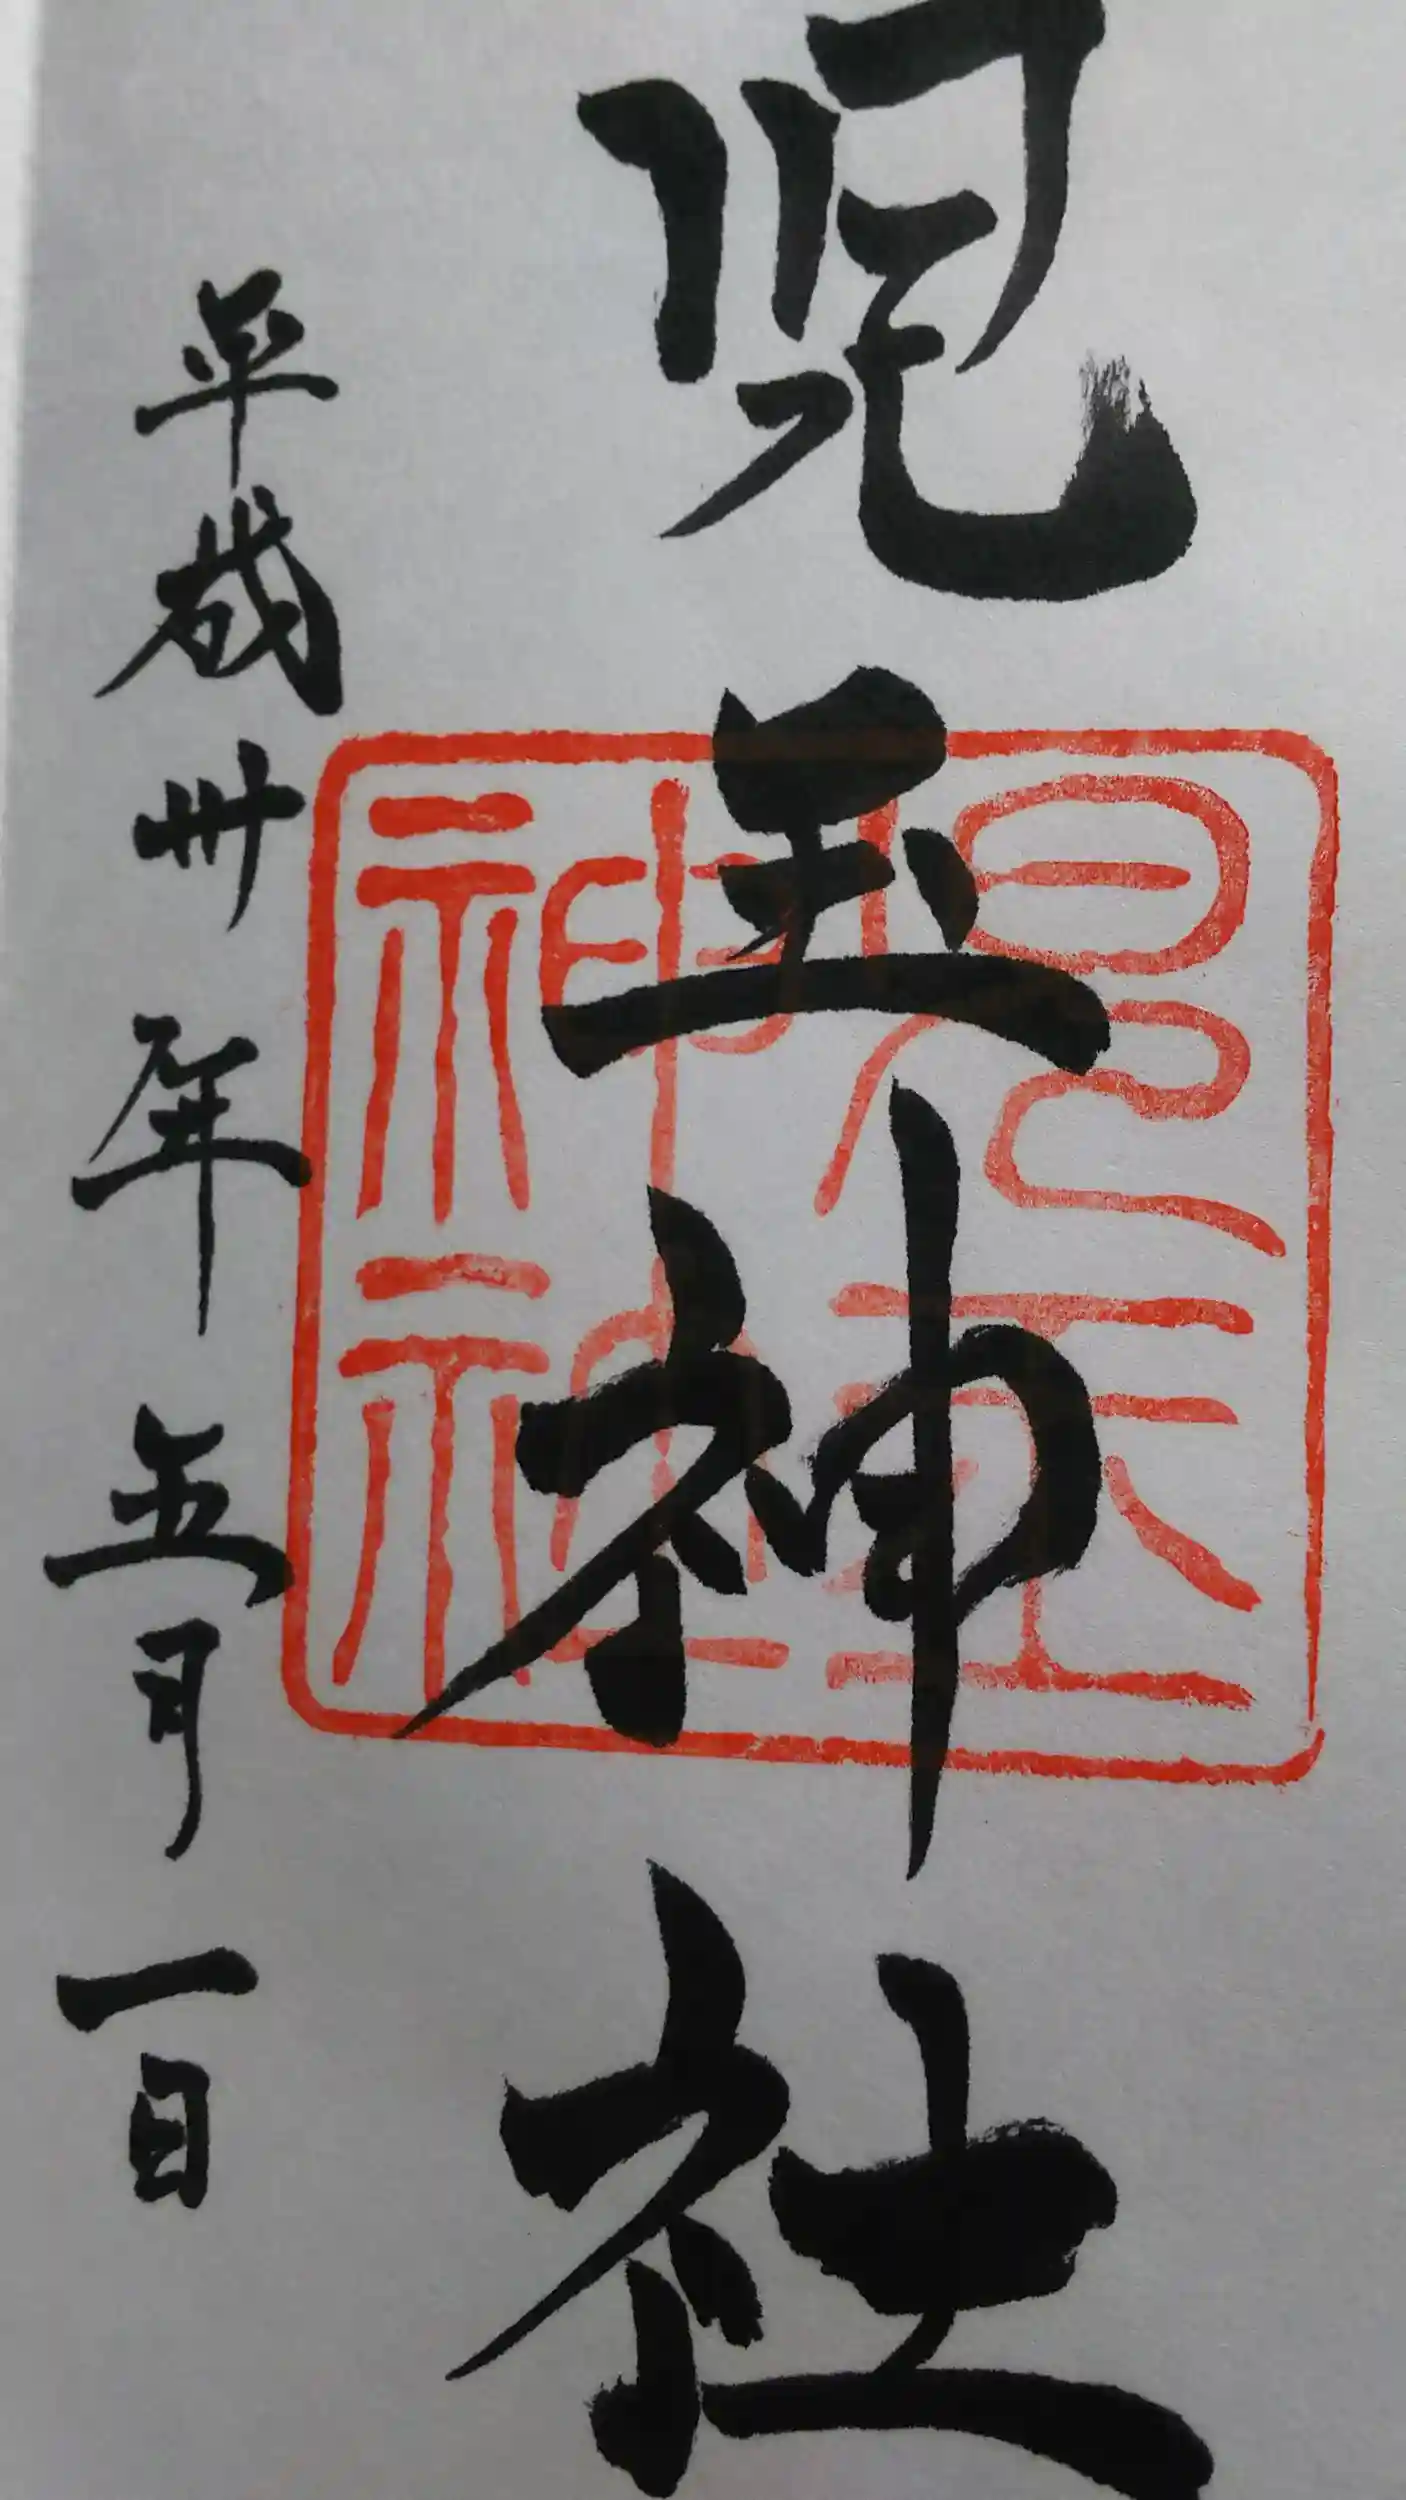 児玉神社
児玉神社
平成卅年五月一日